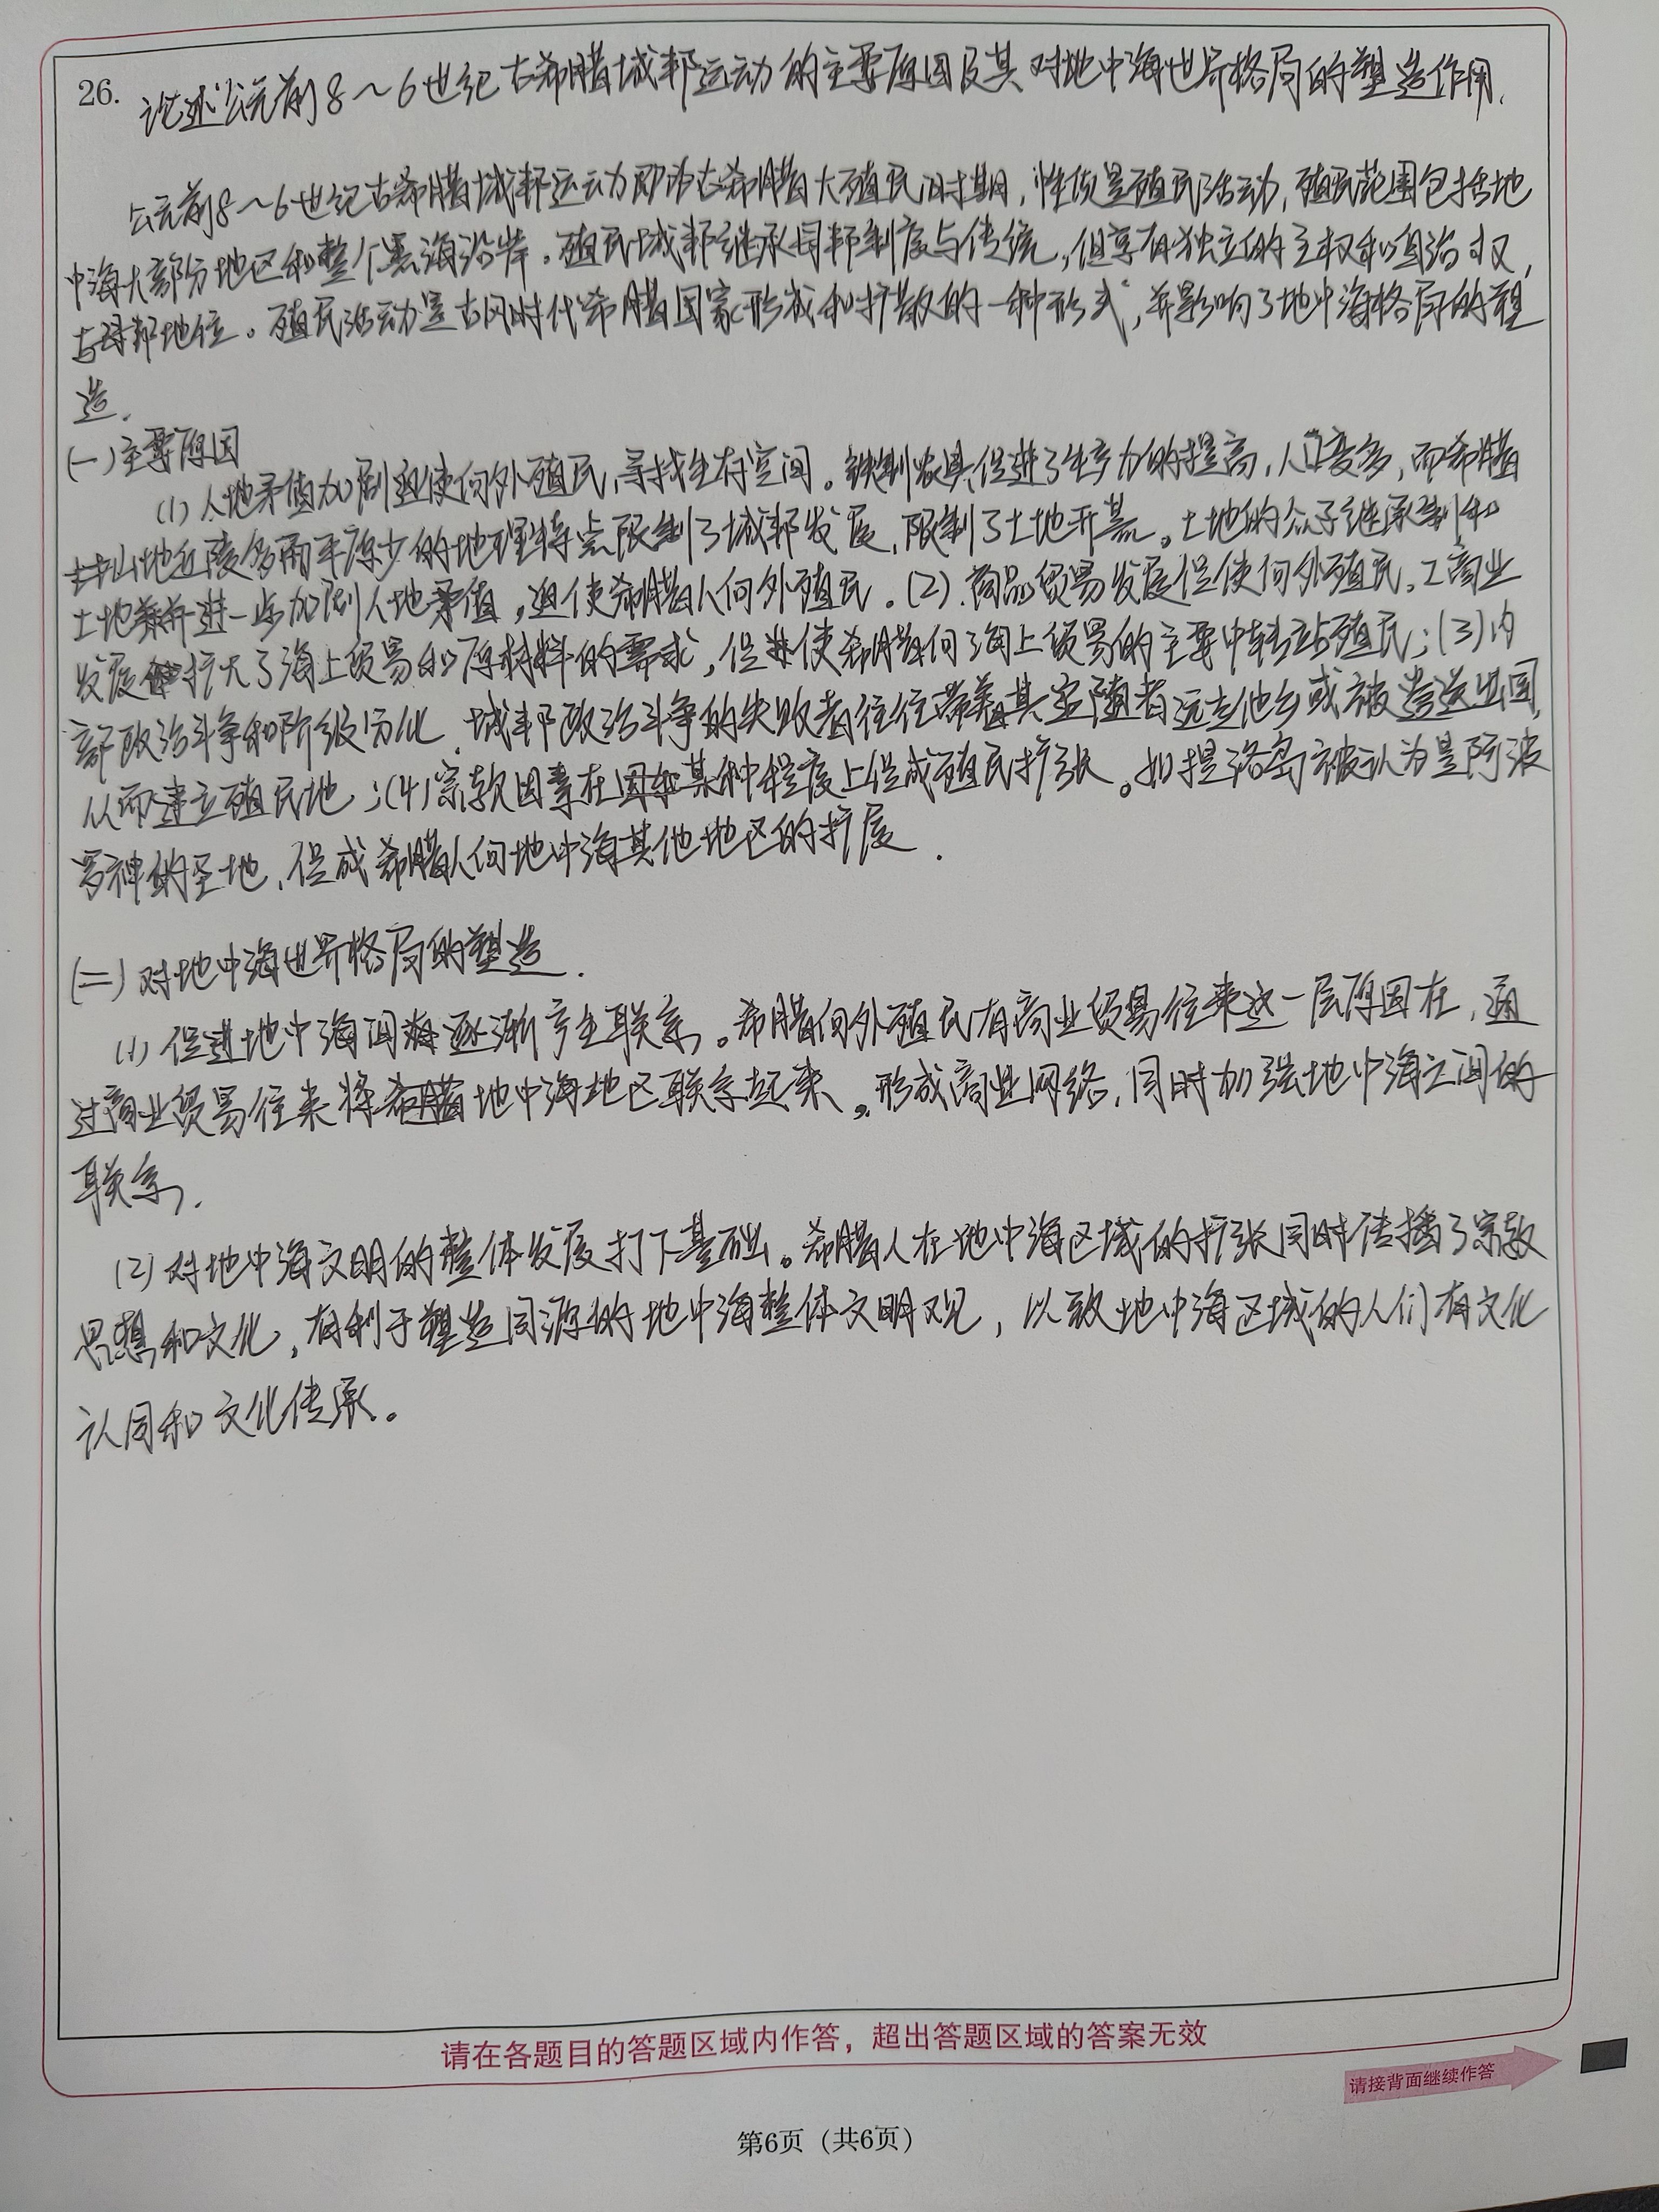 26. 论述公元前8~6世纪古希腊城邦运动的主要原因及其对地中海世界格局的塑造作用.
公元前8~6世纪古希腊城邦运动即为古希腊大殖民时期,性质是殖民活动,殖民范围包括地
中海大部分地区和整个黑海沿岸。殖民城邦继承母邦制度与传统,但享有独立的主权和自治权,
与母邦地位。殖民活动是古风时代希腊国家形成和扩散的一种形式,并影响了地中海格局的塑
造.
(一)主要原因
(1)人地矛盾加剧迫使向外殖民,寻找生存空间。铁制农具促进了生产力的提高,人口变多,而希腊
山地丘陵多而平原少的地理特点限制了城邦发展,限制了土地开荒。土地的众子继承制和
土地兼并进一步加剧人地矛盾,迫使希腊人向外殖民。(2).商品贸易发展促使向外殖民。工商业
发展扩大了海上贸易和原材料的需求,促使希腊向海上贸易的主要中转站殖民;(3)内
部政治斗争和阶级分化.城邦政治斗争的失败者往往带着其追随者远走他乡或被遣送出国,
从而建立殖民地;(4)宗教因素在某种程度上促成殖民扩张。如提洛岛被认为是阿波
罗神的圣地,促成希腊人向地中海其他地区的扩展.
(二)对地中海世界格局的塑造.
(1)促进地中海间逐渐产生联系。希腊向外殖民有商业贸易往来这一层原因在,通
过商业贸易往来将希腊地中海地区联系起来。形成商业网络,同时加强地中海之间的
联系.
(2)对地中海文明的整体发展打下基础。希腊人在地中海区域的扩张同时传播了宗教
思想和文化,有利于塑造同源的地中海整体文明观,以致地中海区域的人们有文化
认同和文化传承。
请在各题目的答题区域内作答，超出答题区域的答案无效
请接背面继续作答
第6页（共6页）